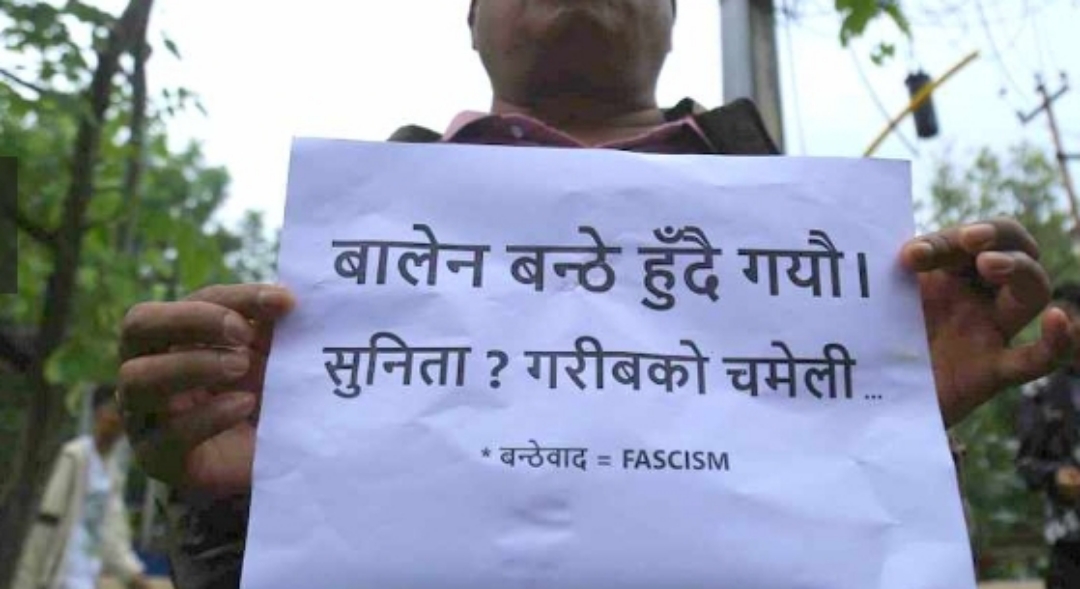 बालेन बन्ठे हुँदै गयौ।
सुनिता ? गरीबको चमेली...
* बन्ठेवाद = FASCISM